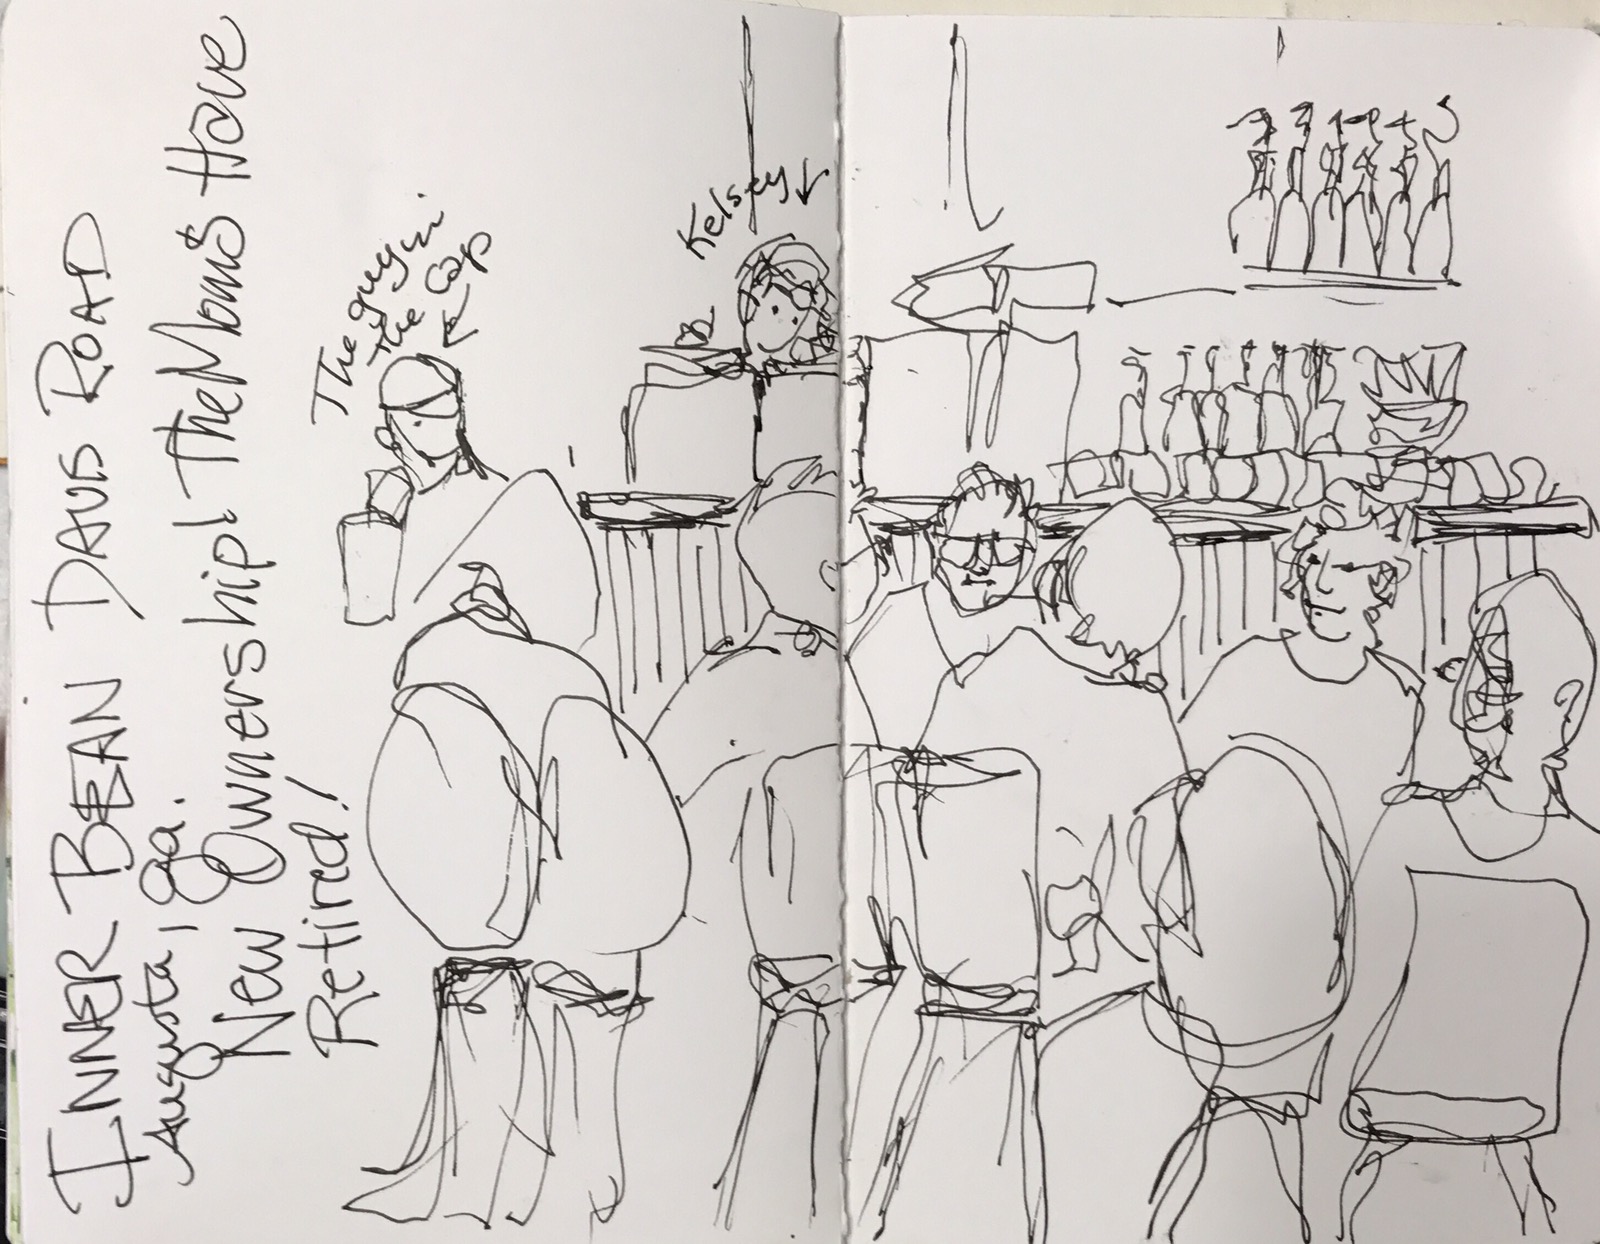 INNER BEAN DAVIS ROAD
Augusta, Ga.
New Ownership! The Mom's Have
Retired!
The guy in
the Cap
Kelsey